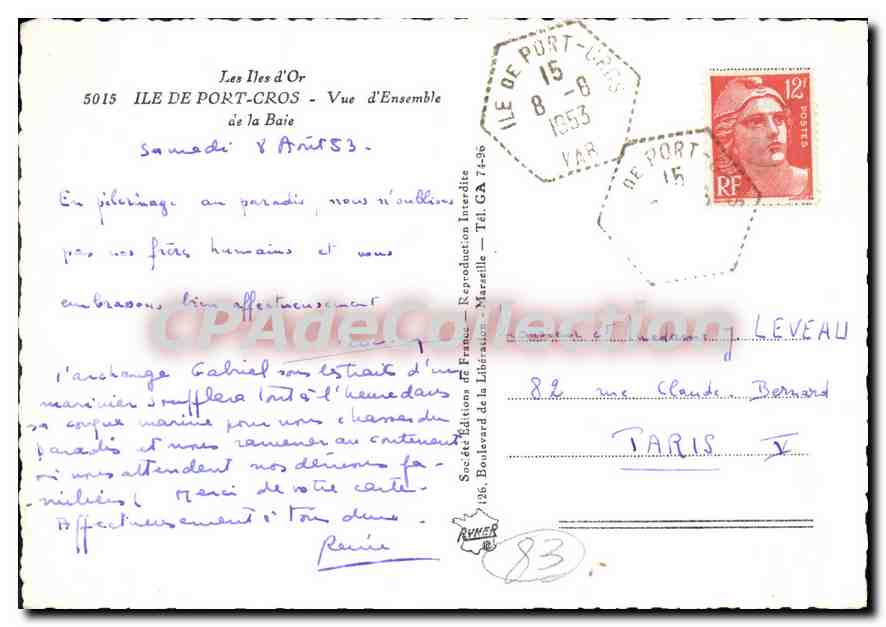 Les Iles d'Or
5015 ILE DE PORT-CROS - Vue d'Ensemble
de la Baie
Samedi 8 Août 53.
En pélerinage au paradis, nous n'oublions
pas nos frères humains et vous
embrassons bien affectueusement
L'archange Gabriel sous les traits d'un
marinier soufflera tout à l'heure dans
sa conque marine pour nous chasser du
paradis et nous ramener au continent
où nous attendent nos démons fa-
-miliers! Merci de votre carte.
Affectueusement à tous deux.
Renée
Société Editions de France — Reproduction Interdite
126, Boulevard de la Libération - Marseille — Tél. GA 74-96
RYNER
83
ILE DE PORT-CROS
15
8 - 8
1953
VAR
DE PORT-
15
S
12F
POSTES
RF
Monsieur et Madame J. LEVEAU
82 rue Claude Bernard
PARIS V
CPAdeCollection